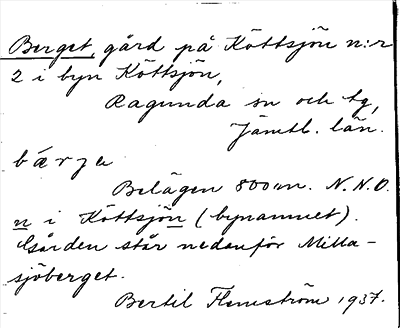 Berget, gård på Köttsjön n:r
2 i byn Köttsjön,
Ragunda sn och tg,
Jämtl. län.
bárja
Belägen 800 m. N.N.O.
n i Köttsjön (bynamnet).
Gården står nedanför Mitta-
sjöberget.
Bertil Flemström 1937.